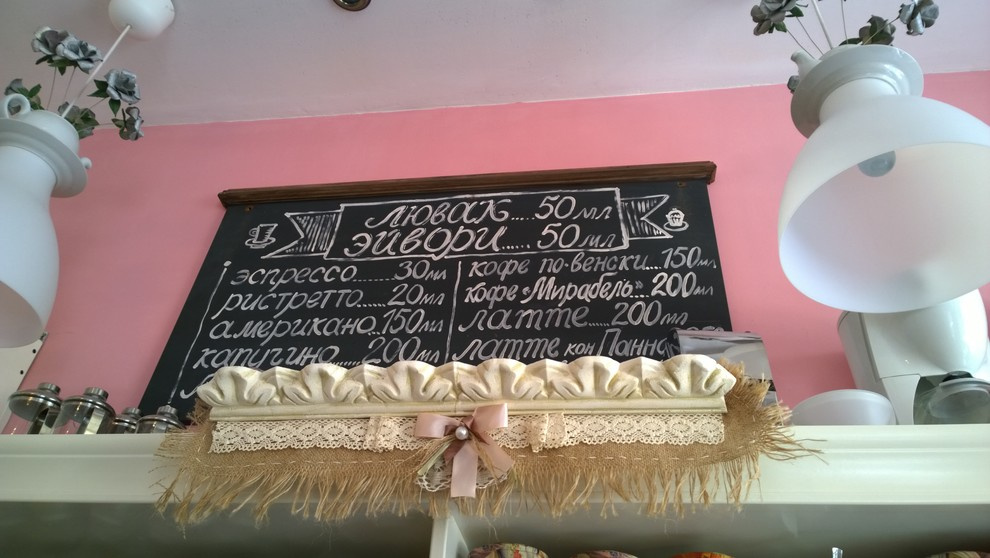 Лювак.....50мл
Эйвори......50мл
эспрессо......30мл
ристретто......20мл
американо.150мл
капучино....200мл
кофе по-венски...150мл
кофе «Мирабель»..200мл
латте.....200мл
латте кон Панна